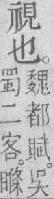 視也。魏都賦。吳
蜀二客。